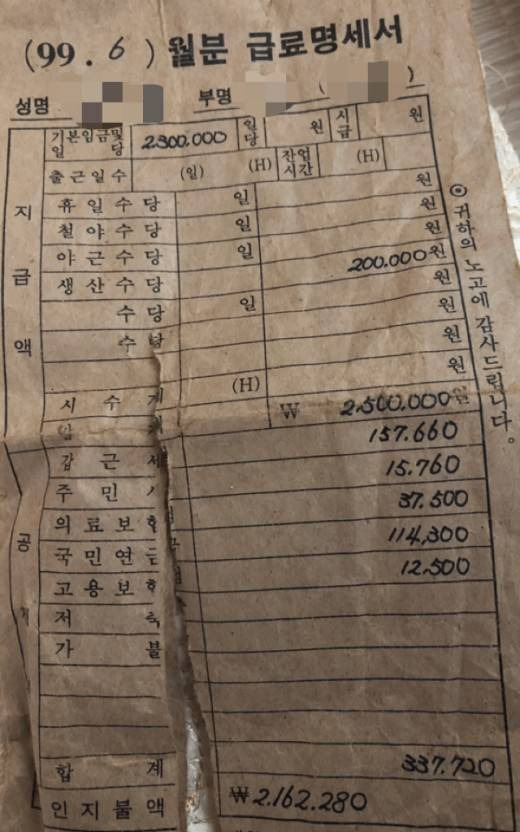 (99. 6) 월분 급료명세서
성명 부명 ( )
기본임금및 일당 2300.000 일당 원 시급 원
출근일수 (일) (H) 잔업시간 (H)
지급액
휴일수당 일 원
철야수당 일 원
야근수당 일 200.000원
생산수당 원
수당 일 원
수당 원
원
시수계 (H)
₩ 2.500.000원
공
갑근세 157.660
주민 15.760
의료보험 37.500
국민연금 114,300
고용보험 12.500
저축
가불
합계 337.720
인지불액 ₩2.162.280
◉ 귀하의 노고에 감사드립니다.